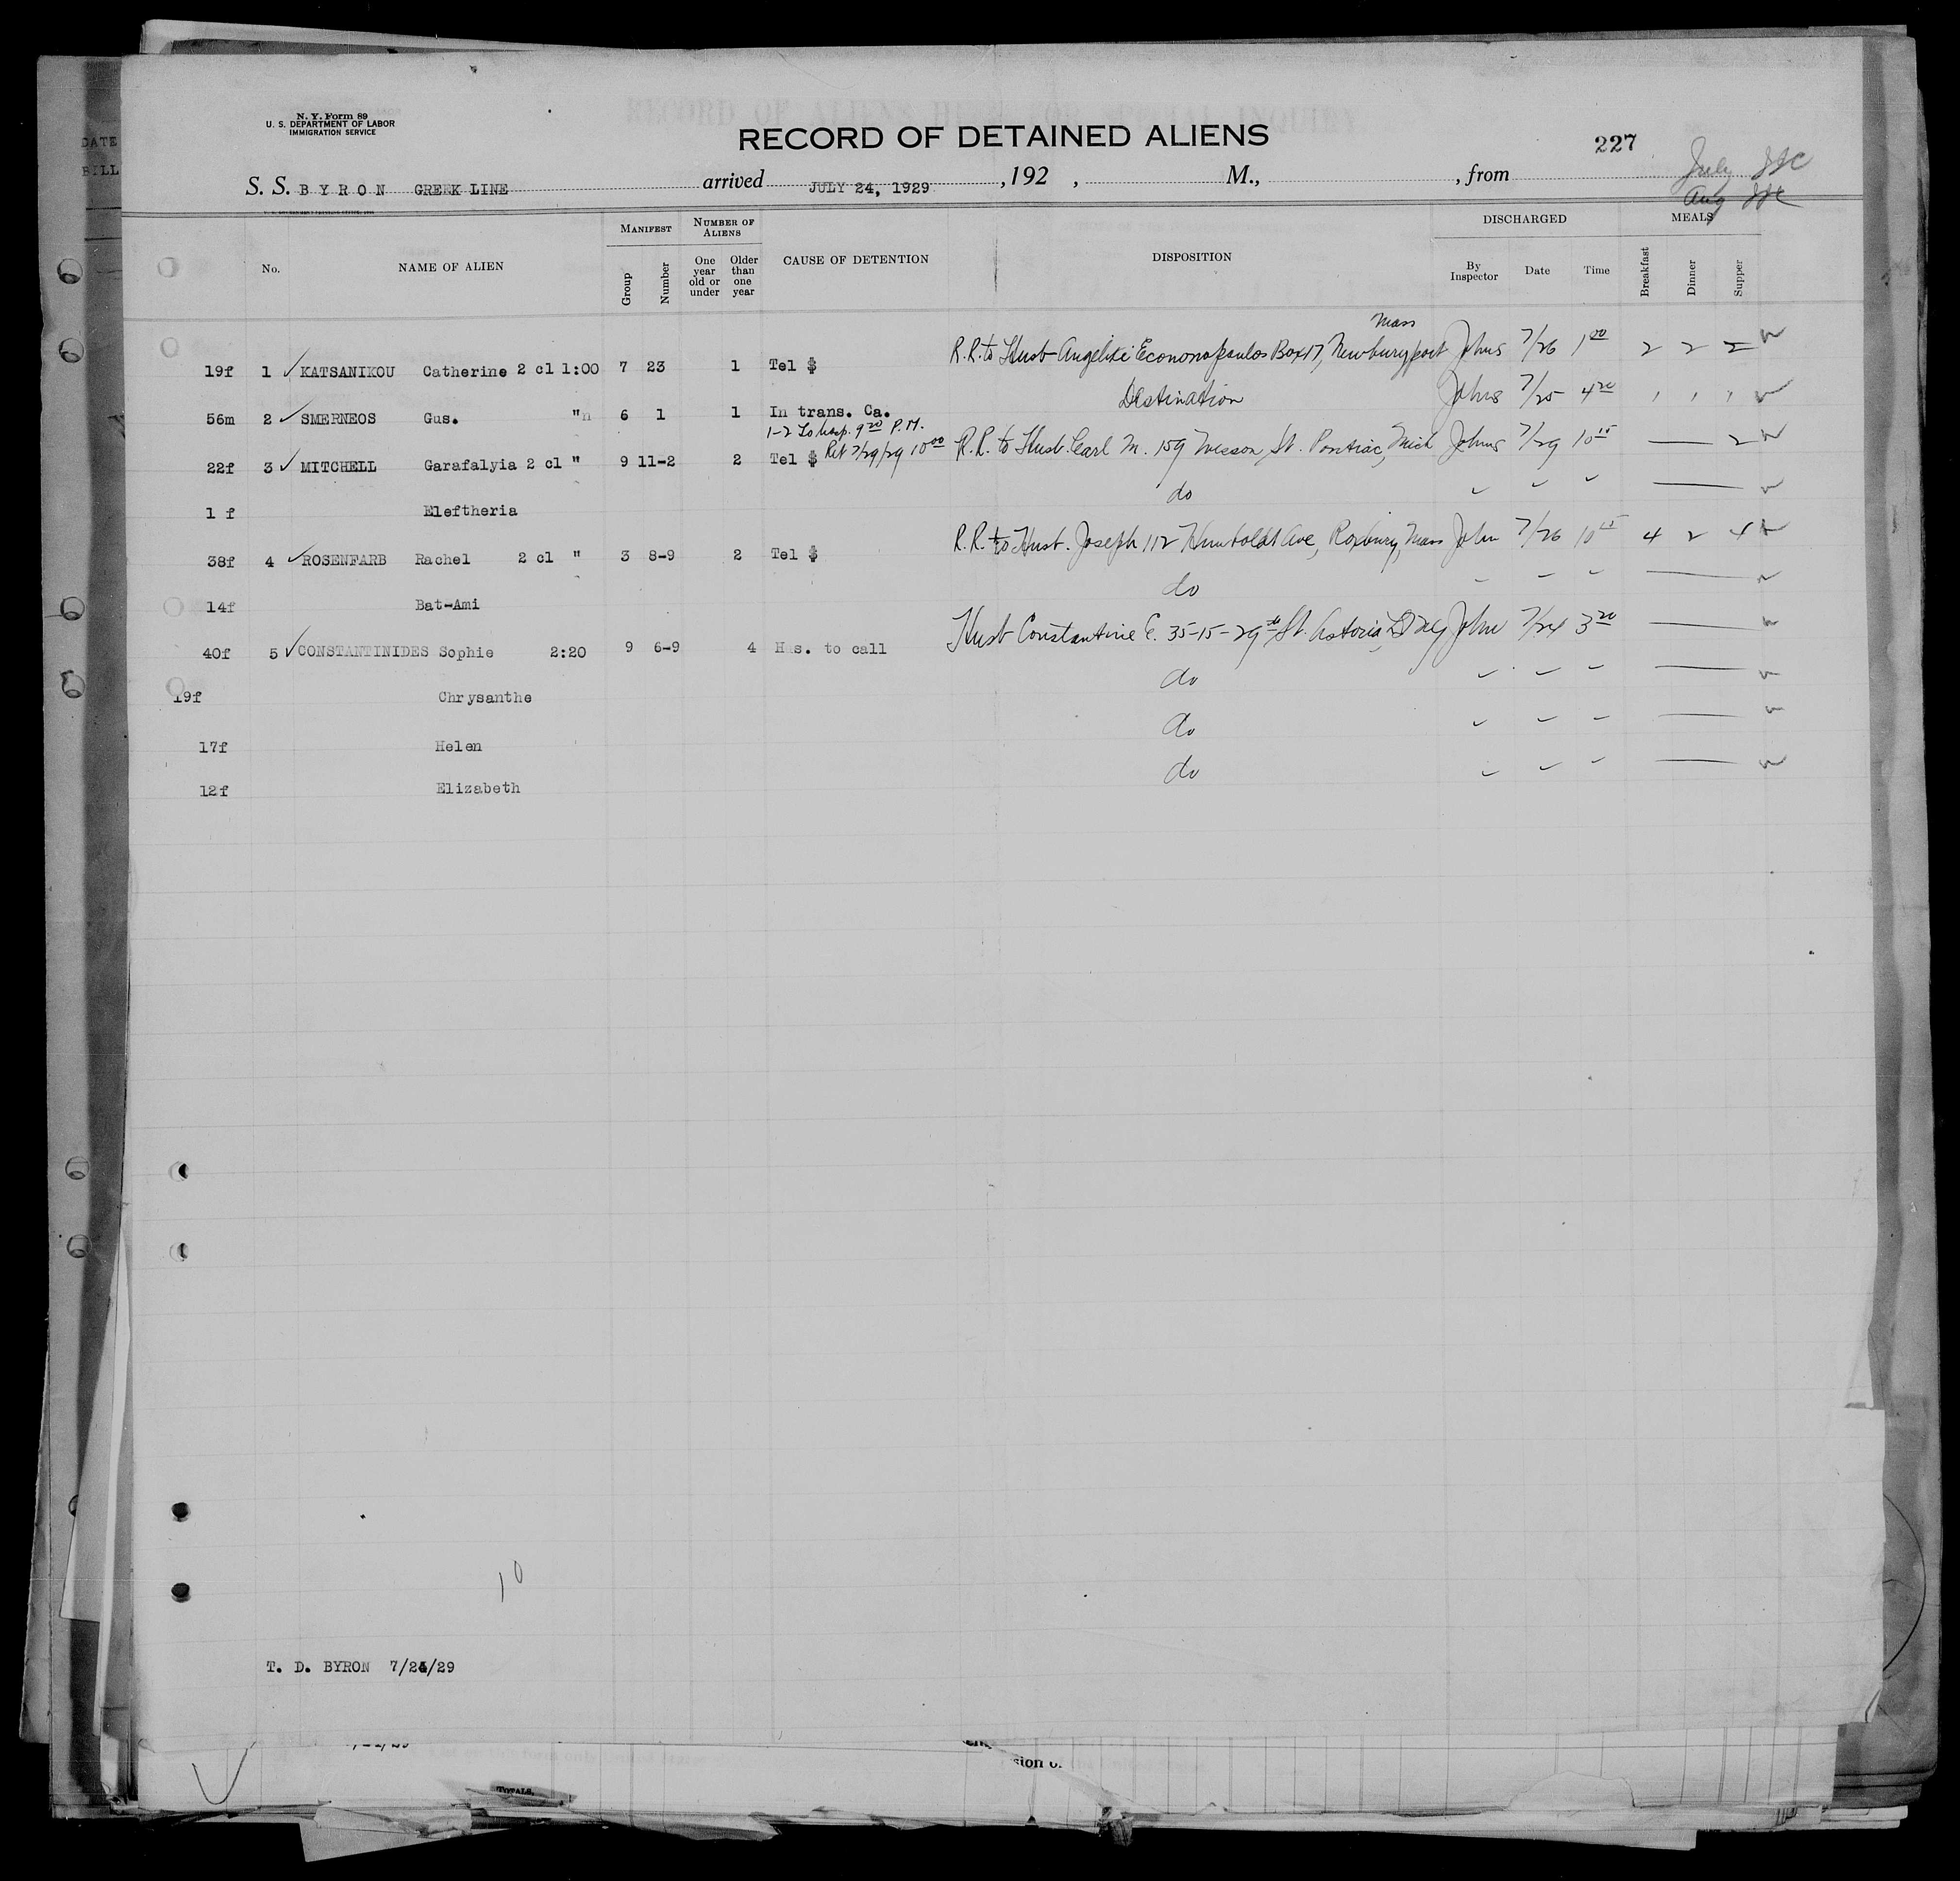 N. Y. Form 89
U. S. DEPARTMENT OF LABOR
IMMIGRATION SERVICE
RECORD OF DETAINED ALIENS
227
July
Aug
S. S. BYRON GREEK LINE arrived JULY 24, 1929, 192 , M., , from
DATE
BILL
No. NAME OF ALIEN MANIFEST Group Number NUMBER OF ALIENS One year old or under Older than one year CAUSE OF DETENTION DISPOSITION DISCHARGED By Inspector Date Time MEALS Breakfast Dinner Supper
Mass
19f 1 ✓ KATSANIKOU Catherine 2 cl 1:00 7 23 1 Tel $ R.R. to Husb Angelike Economopoulos Box 17, Newburyport Johns 7/26 1 00 2 2 2
56m 2 ✓ SMERNEOS Gus. " 6 1 1 In trans. Ca. Destination Johns 7/25 4 20 1 1 1
1-2 To hosp. 9 20 P.M.
Ret 7/29/29 10 00
22f 3 ✓ MITCHELL Garafalyia 2 cl " 9 11-2 2 Tel $ R.R. to Husb. Carl M. 159 Wesson St. Pontiac, Mich Johns 7/29 10 15 2
1 f Eleftheria do
38f 4 ✓ ROSENFARB Rachel 2 cl " 3 8-9 2 Tel $ R.R. to Husb. Joseph 112 Humboldt Ave, Roxbury, Mass John 7/26 10 15 4 2 4
14f Bat-Ami do
40f 5 ✓ CONSTANTINIDES Sophie 2:20 9 6-9 4 Hus. to call Husb Constantine C. 35-15-29th St. Astoria, L.I. John 7/24 3 20
19f Chrysanthe do
17f Helen do
12f Elizabeth do
10
T. D. BYRON 7/24/29
TOTALS